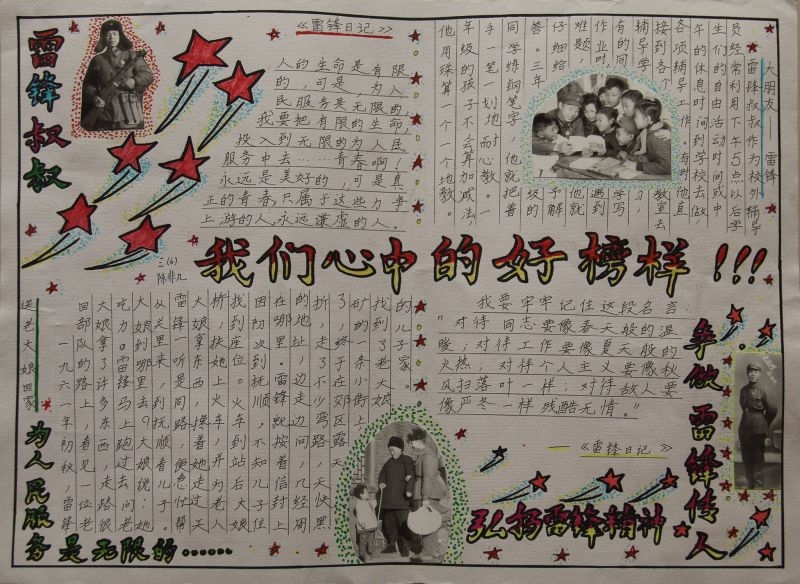 雷锋叔叔
《雷锋日记》
人的生命是有限
的，可是，为人
民服务是无限的，
我要把有限的生命，
投入到无限的为人民
服务中去……青春啊！
永远是美好的，可是真
正的青春，只属于这些力争
上游的人，永远谦虚的人。
大朋友——雷锋
雷锋叔叔作为校外辅导
员经常利用下午5点以后学
生们的自由活动时间或中
午的休息时间到学校去做
各项辅导工作。有时他直
接到各个教室去
辅导学习
有的同学写
作业时遇到
难题，他就
仔细给予解
答。三年级的
同学练钢笔字，他就把着
手一笔一划地耐心教。一
年级的孩子不会算加减法，
他用珠算一个一个地教。
三(6)
陈非凡
我们心中的好榜样!!!
送老大娘回家
一九六一年初秋，雷锋
回部队的路上，看见一位老
大娘拿了许多东西，走路很
吃力。雷锋马上跑过去问老
大娘到哪里去？大娘说：她
从关里来，到抚顺看儿子。
雷锋一听是同路，便急忙帮
大娘拿东西，搀着她走过天
桥，扶她上火车，并为老人
找到座位。火车到站后大娘
因初次到抚顺，不知儿子住
在哪里。雷锋就按着信封上
的地址，边走边问，几经周
折，走了不少弯路，天快黑
了，终于在郊区露天
矿的一条小街上，
找到了老大娘
的儿子家。
为人民服务是无限的……
我要牢牢记住这段名言：
“对待同志要像春天般的温
暖；对待工作要像夏天般的
火热；对待个人主义要像秋
风扫落叶一样；对待敌人要
像严冬一样残酷无情。”
——《雷锋日记》
弘扬雷锋精神
争做雷锋传人